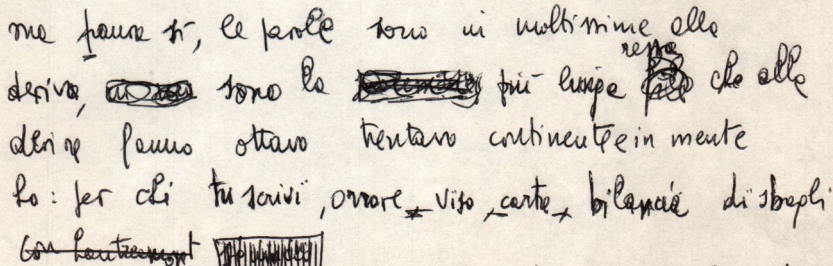 ma paura sì, le parole sono in moltissime alla
deriva, sono la più lunga ressa che alla
deriva fanno ottavo trentavo continente e in mente
ho: per chi tu scrivi, orrore_viso_carte_bilancia di sbagli
con